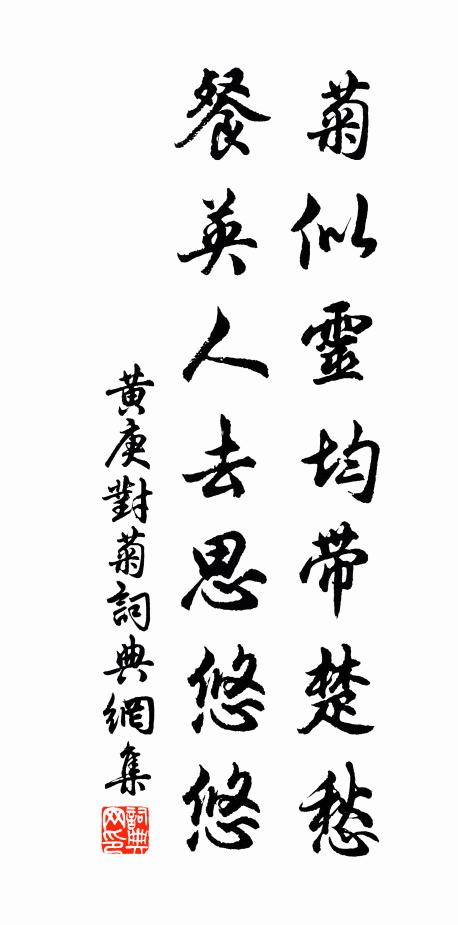 菊似靈均带楚愁
餐英人去思悠悠
黄庚對菊詞典網集
詞典网印